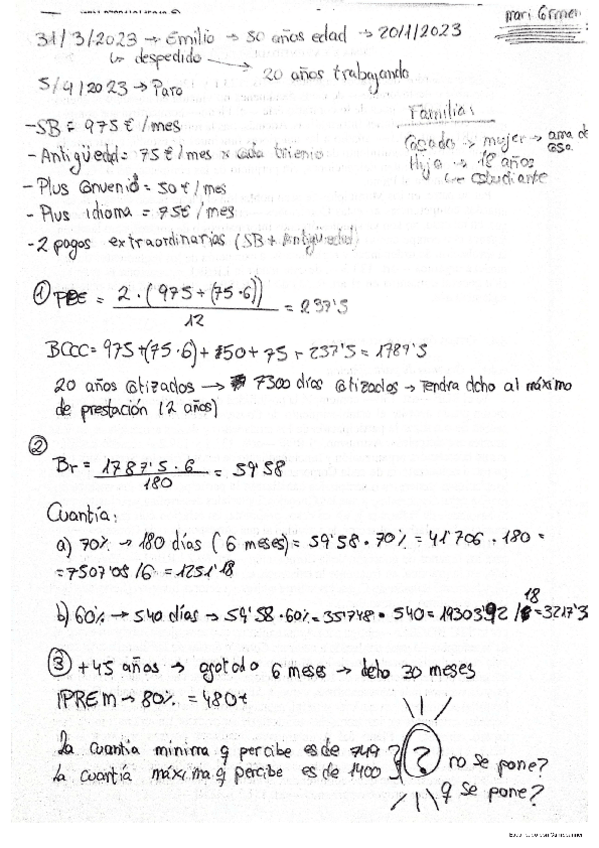 Mari Carmen
31/3/2023 → Emilio → 50 años edad → 20/1/2023
↳ despedido → 20 años trabajando
5/4/2023 → Paro
Familia:
Casado → mujer → ama de casa.
Hijo → 18 años
↳ estudiante
- SB = 975€/mes
- Antigüedad = 75€/mes x cada trienio
- Plus Convenio = 50€/mes
- Plus idioma = 75€/mes
- 2 pagas extraordinarias (SB + Antigüedad)
① PPE = 2·(975+(75·6)) / 12 = 237'5
BCCC = 975+(75·6)+50+75+237'5 = 1787'5
20 años cotizados → 7300 días cotizados → Tendra dcho al máximo
de prestación (2 años)
②
Br = 1787'5·6 / 180 = 59'58
Cuantía:
a) 70% → 180 días (6 meses) = 59'58·70% = 41'706·180 =
= 7507'08/6 = 1251'18
b) 60% → 540 días → 59'58·60% = 35'748·540 = 19303'92/18 = 3217'3
③ +45 años → agotado 6 meses → dcho 30 meses
IPREM → 80% = 480€
La cuantía minima q percibe es de 749
La cuantía máxima q percibe es de 1400
?
no se pone?
q se pone?